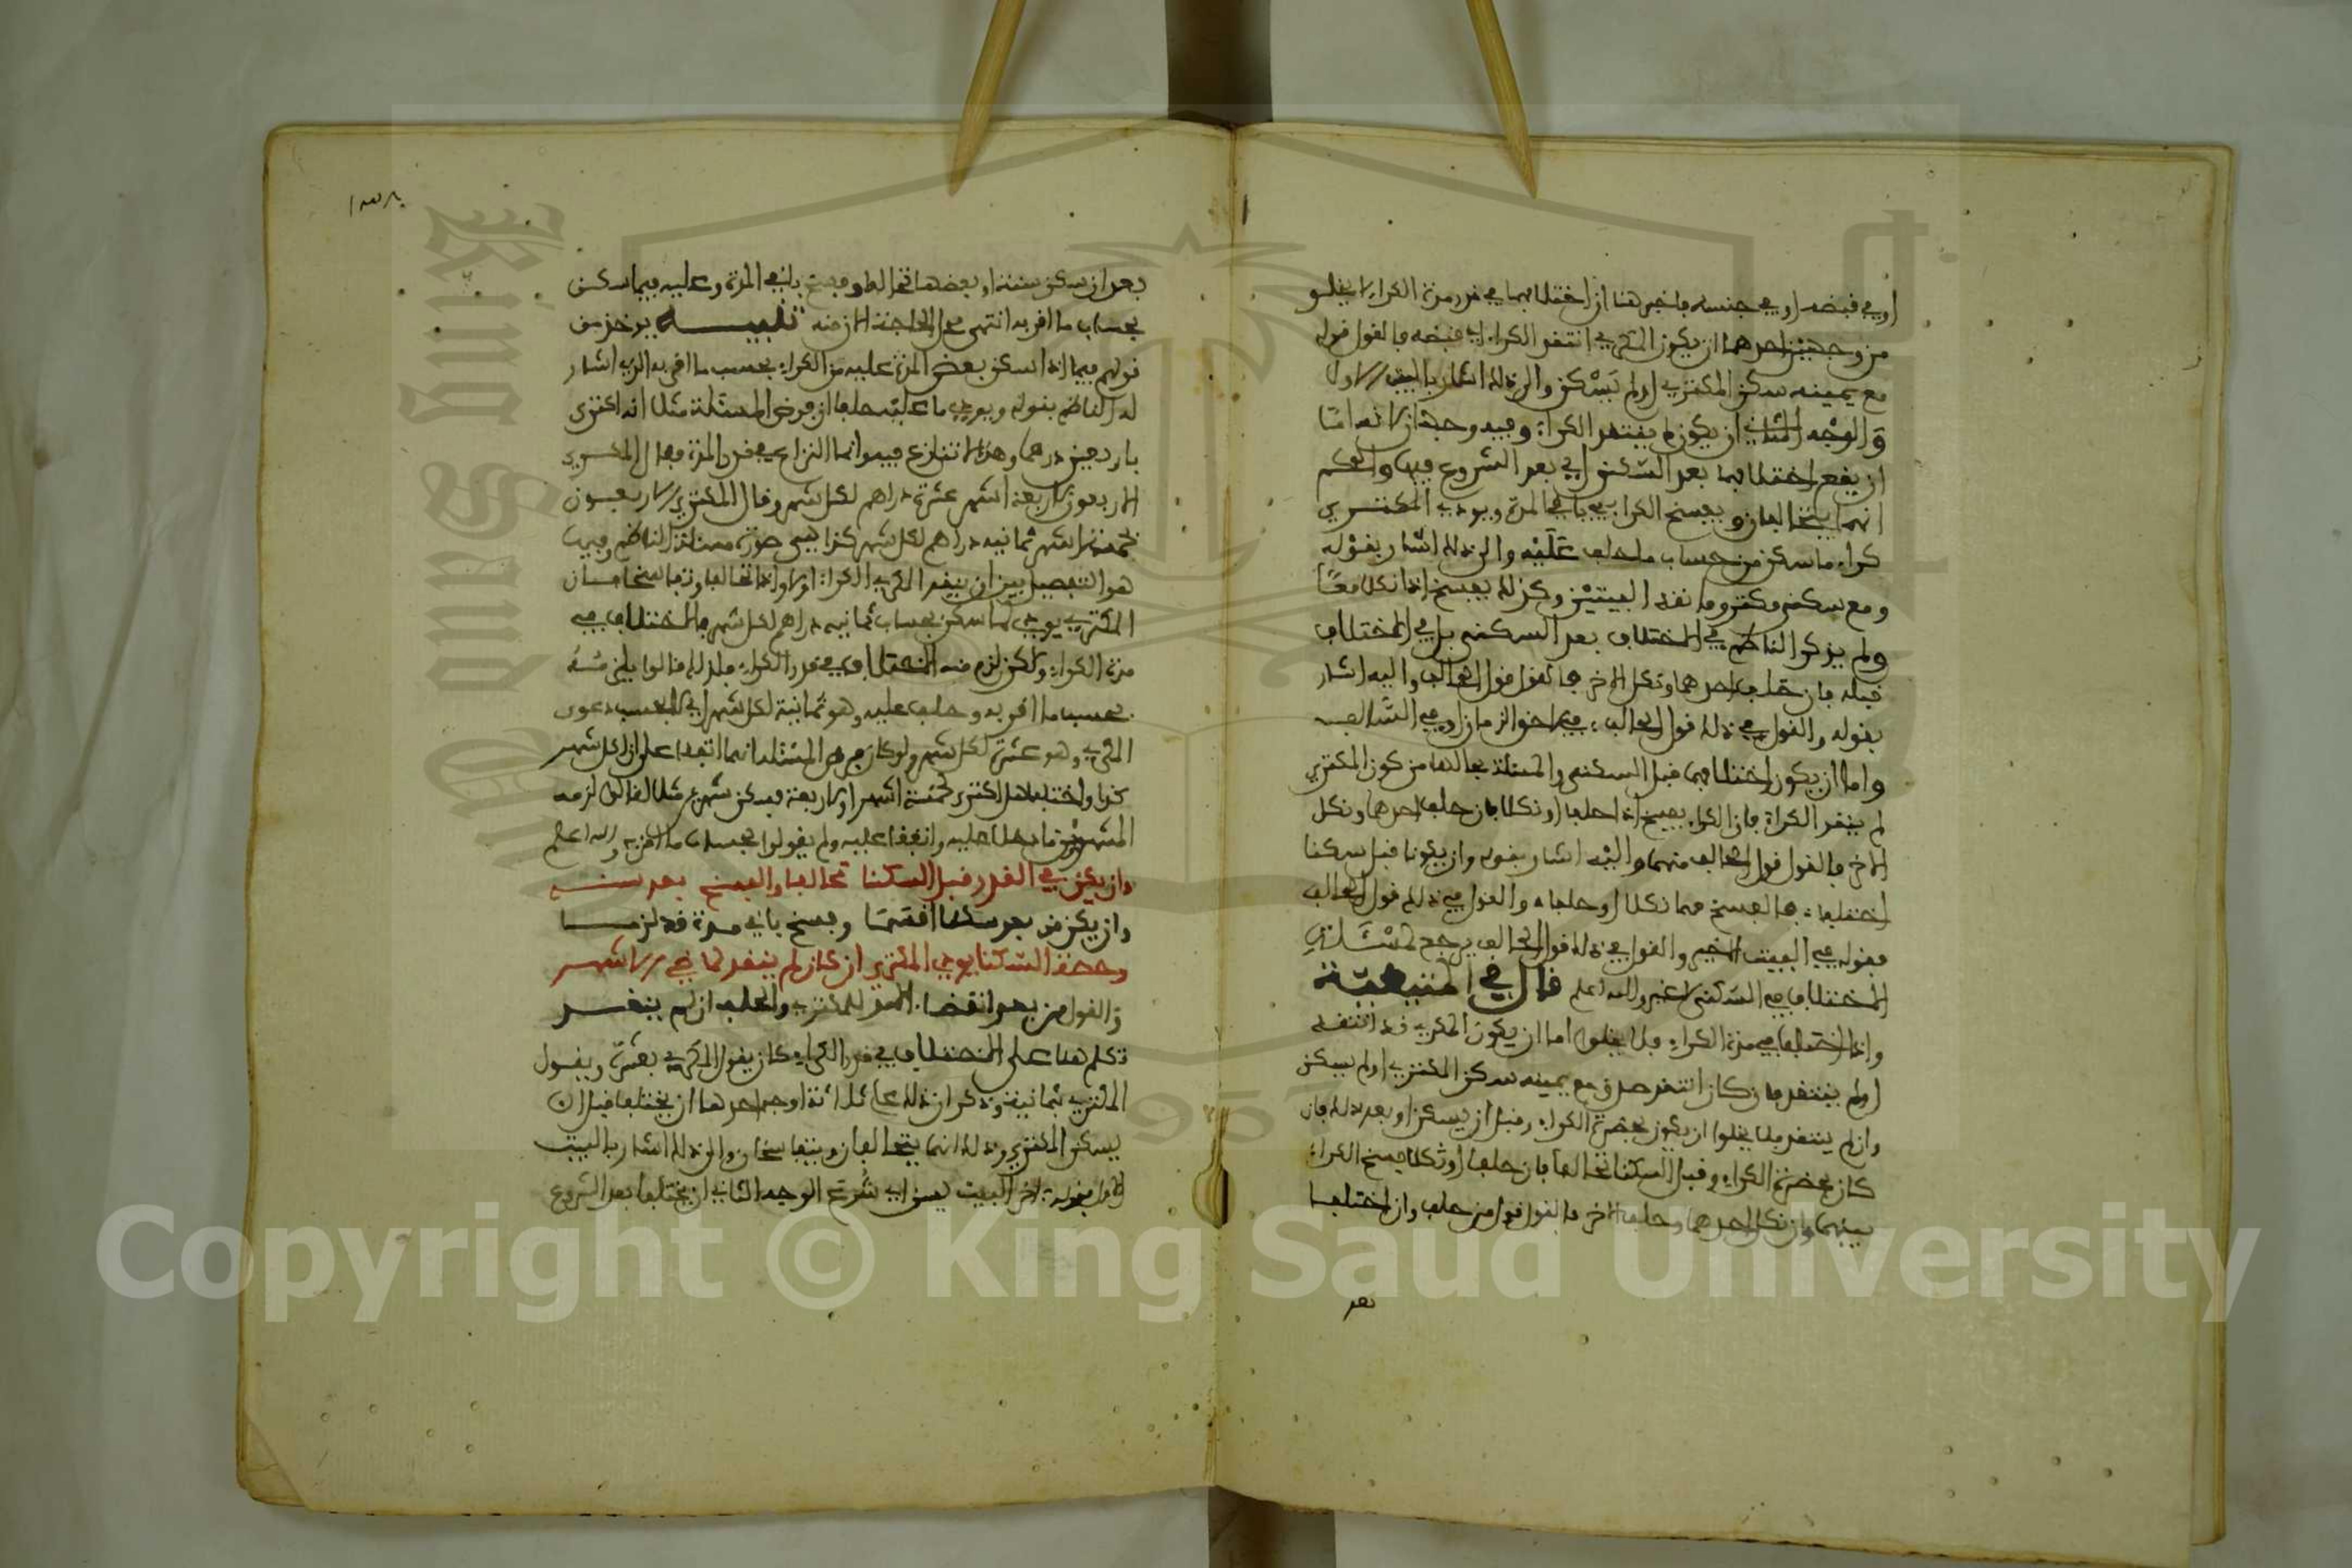 او في قبضه او في جنسه فاخبر هنا ان اختلافهما في قدر مدة الكراء لا يخلو
من وجهين احدهما ان يكون المكري انتقد الكراء اي قبضه فالقول قوله
مع يمينه سكن المكتري او لم يَسْكن والى ذلك اشار بالبيت الاول
وَالوَجْه الثاني ان يكون لم ينتقد الكراء وفيه وجهان لانه امّا
ان يقع اختلافهما بعد السّكنى اي بعد الشروع فيها والحكم
انهما يتحالفان ويفسخ الكراء في باقي المدة ويودي المكتري
كراء ما سكن من حساب ما حلف عَلَيْه والى ذلك اشار بقوْله
ومع سكنى مكتر وما نقد البيتيْن وكذلك يفسخ اذا نكلا معًا
ولم يذكر الناظم في الاختلاف بعد السكنى بل في الاختلاف
قبله فان حلف احدهما ونكل الاخر فالقول قول الحالف واليه اشار
بقوله والقول في ذلك قول الحالف في لاحق الزمان او في السّالف
واما ان يكون اختلافهما قبل السكنى والمسئلة بحالها من كون المكتري
لم ينقد الكراء فان الكراء يفسخ اذا حلفا او نكلا فان حلف احدهما ونكل
الاخر فالقول قول الحالف منهما واليْه اشار بقوله وان يكونا قبل سكنا
اختلفا فالفسخ مهما نكلا او حلفا والقول في ذلك قول الحالف
فقوله في البيت الاخير والقول في ذلك قول الحالف يرجع لمسْئَلتي
الاختلاف في السّكنى لا غير والله اعلم قال في المتيطيّة
واذا اختلفا في مدة الكراء فلا يخلوا اما ان يكون المكري قد انتقد
او لم ينتقد فان كان انتقد صدق مع يمينه سكن المكتري او لم يسكن
وان لم ينتقد فلا يخلوا ان يكون بحضرة الكراء وقبل ان يسكن او بعد ذلك فان
كان بحضرة الكراء وقبل السكنا تحالفا فان حلفا او نكلا فسخ الكراء
بينهما وان نكل احدهما وحلف الاخر فالقول قول من حلف وان اختلفا
بعد
بعد ان سكن سنة او بعضها تحالفا وفسخ باقي المدة وعليه فيما سكن
بحساب ما اقر به انتهى على الحاجة منه تنبيـــه يوخذ من
قولهم فيما اذا سكن بعض المدة عليه من الكراء بحسب ما اقر به الذي اشار
له الناظم بقوله ويودي ما عليه حلفا ان فرض المسئلة مثلا انه اكترى
باربعين درهما وهذا لا تنازع فيه وانما النزاع في قدر المدة فقال المكري
الاربعون لاربعة اشهر عشرة دراهم لكل شهر وقال المكتري الاربعـون
لخمسة اشهر ثمانية دراهم لكل شهر كذا هي صورة مسئلة الناظم وفيها
هو التفصيل بين ان ينقد المكري الكراء او لا واذا تحالفا وتفاسخا فان
المكتري يودي لما سكن بحساب ثمانية دراهم لكل شهر فالاختلاف في
مدة الكراء ولكن لزم منه الاختلاف في قدر الكراء فلذلك قالوا يلزمُهُ
بحسب ما اقر به وحلف عليه وهو ثمانية لكل شهر اي لا بحسب دعوى
المكري وهو عشرة لكل شهر ولو كان فرض المسئلة انهما اتفقا على ان لكل شهر
كذا واختلفا هل اكترى لخمسة اشهر او لاربعة فسكن شهرين مثلا لقالوا لزمه
الشهرين ما دخلا عليه واتفقا عليه ولم يقولوا بحساب ما اقر به والله اعلم
وان يكن في القدر قبل السكنا تحالفا والفسخ بعد سنـــا
وان يكن من بعد سكنا اقسما وفسخ باقي مدة قد لزمــا
وحصة السّكنا يودي المكتري ان كان لم ينقد لماضي الاشهـر
والقول من بعد انقضا الامد للمكتري والحلف ان لم ينقــد
تكلم هنا على الاختلاف في قدر الكراء كان يقول المكري بعشرة ويقــول
المكتري بثمانية وذكر ان ذلك على ثلاثة اوجه احدها ان يختلفا قبل ان
يسكن المكتري وذلك انهما يتحالفان ويتفاسخان والى ذلك اشار بالبيت
الاول بقوله اخر البيت يسنا اي شُرعَ الوجه الثاني ان يختلفا بعد الشروع